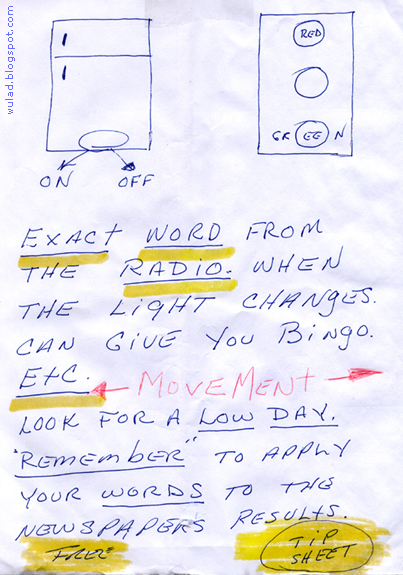 wulad.blogspot.com
RED
GREEN
ON OFF
EXACT WORD FROM
THE RADIO. WHEN
THE LIGHT CHANGES.
CAN GIVE YOU BINGO.
EtC.
MOVEMENT
LOOK FOR A LOW DAY.
"REMEMBER" TO APPLY
YOUR WORDS TO THE
NEWSPAPERS RESULTS.
FREE
TIP
SHEET